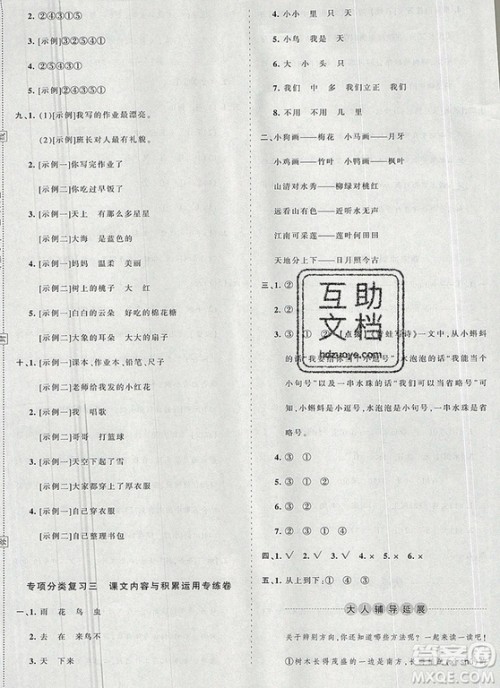 2. ②④③①⑤
3. [示例]③②⑤④①
4. [示例]①③②④⑤
5. [示例]②⑤④③①
九、1. (1)[示例]我写的作业最漂亮。
(2)[示例]班长对人最有礼貌。
2. [示例一]你写完作业了
[示例二]你是中国人
3. [示例一]天上 有那么多星星
[示例二]大海 是蓝色的
4. [示例一]妈妈 温柔 美丽
[示例二]树上的桃子 大 红
5. [示例一]白白的云朵 好吃的棉花糖
[示例二]大象的耳朵 大大的扇子
十、1. [示例一]课本、作业本、铅笔、尺子
[示例二]老师给我发的小红花
2. [示例一]我 唱歌
[示例二]哥哥 打篮球
3. [示例一]天空下起了雪
[示例二]大家都穿上了厚衣服
4. [示例一]自己穿衣服
[示例二]自己整理房间
专项分类复习三 课文内容与积累运用专练卷
一、1. 雨 花 鸟 虫
2. 去 在 来鸟不
3. 天 下 来
4. 小 小 里 只 天
5. 小鸟 我是 天
6. 大 小 头 只
7. 我们 中 多 我们立正 我们
8. 不用 不用 几里
二、小狗画——梅花 小马画——月牙
小鸡画——竹叶 小鸭画——枫叶
山清对水秀——柳绿对桃红
远看山有色——近听水无声
江南可采莲——莲叶何田田
天地分上下——日月照今古
三、1. ②
2. ②
3. ③ ① ②
话”“水泡泡说
小句号”“一串水珠说:‘我们可以当省略号’”可
知,小蝌蚪是小逗号,水泡泡是小句号,一串水珠是
省略号。
4. ③ ①
5. ② ①
6. ③ ②
7. ① ②
四、1. √ 2. √ 3. × 4. × 5. √
五、1. ③ ④ ② ①
大人辅导延展
关于辨别方向,你还知道哪些方法呢?一起来读读吧!
①树木长得茂盛的一面是南方,
互助文档
hdzuoye.com
答案圈
MXQE.COM